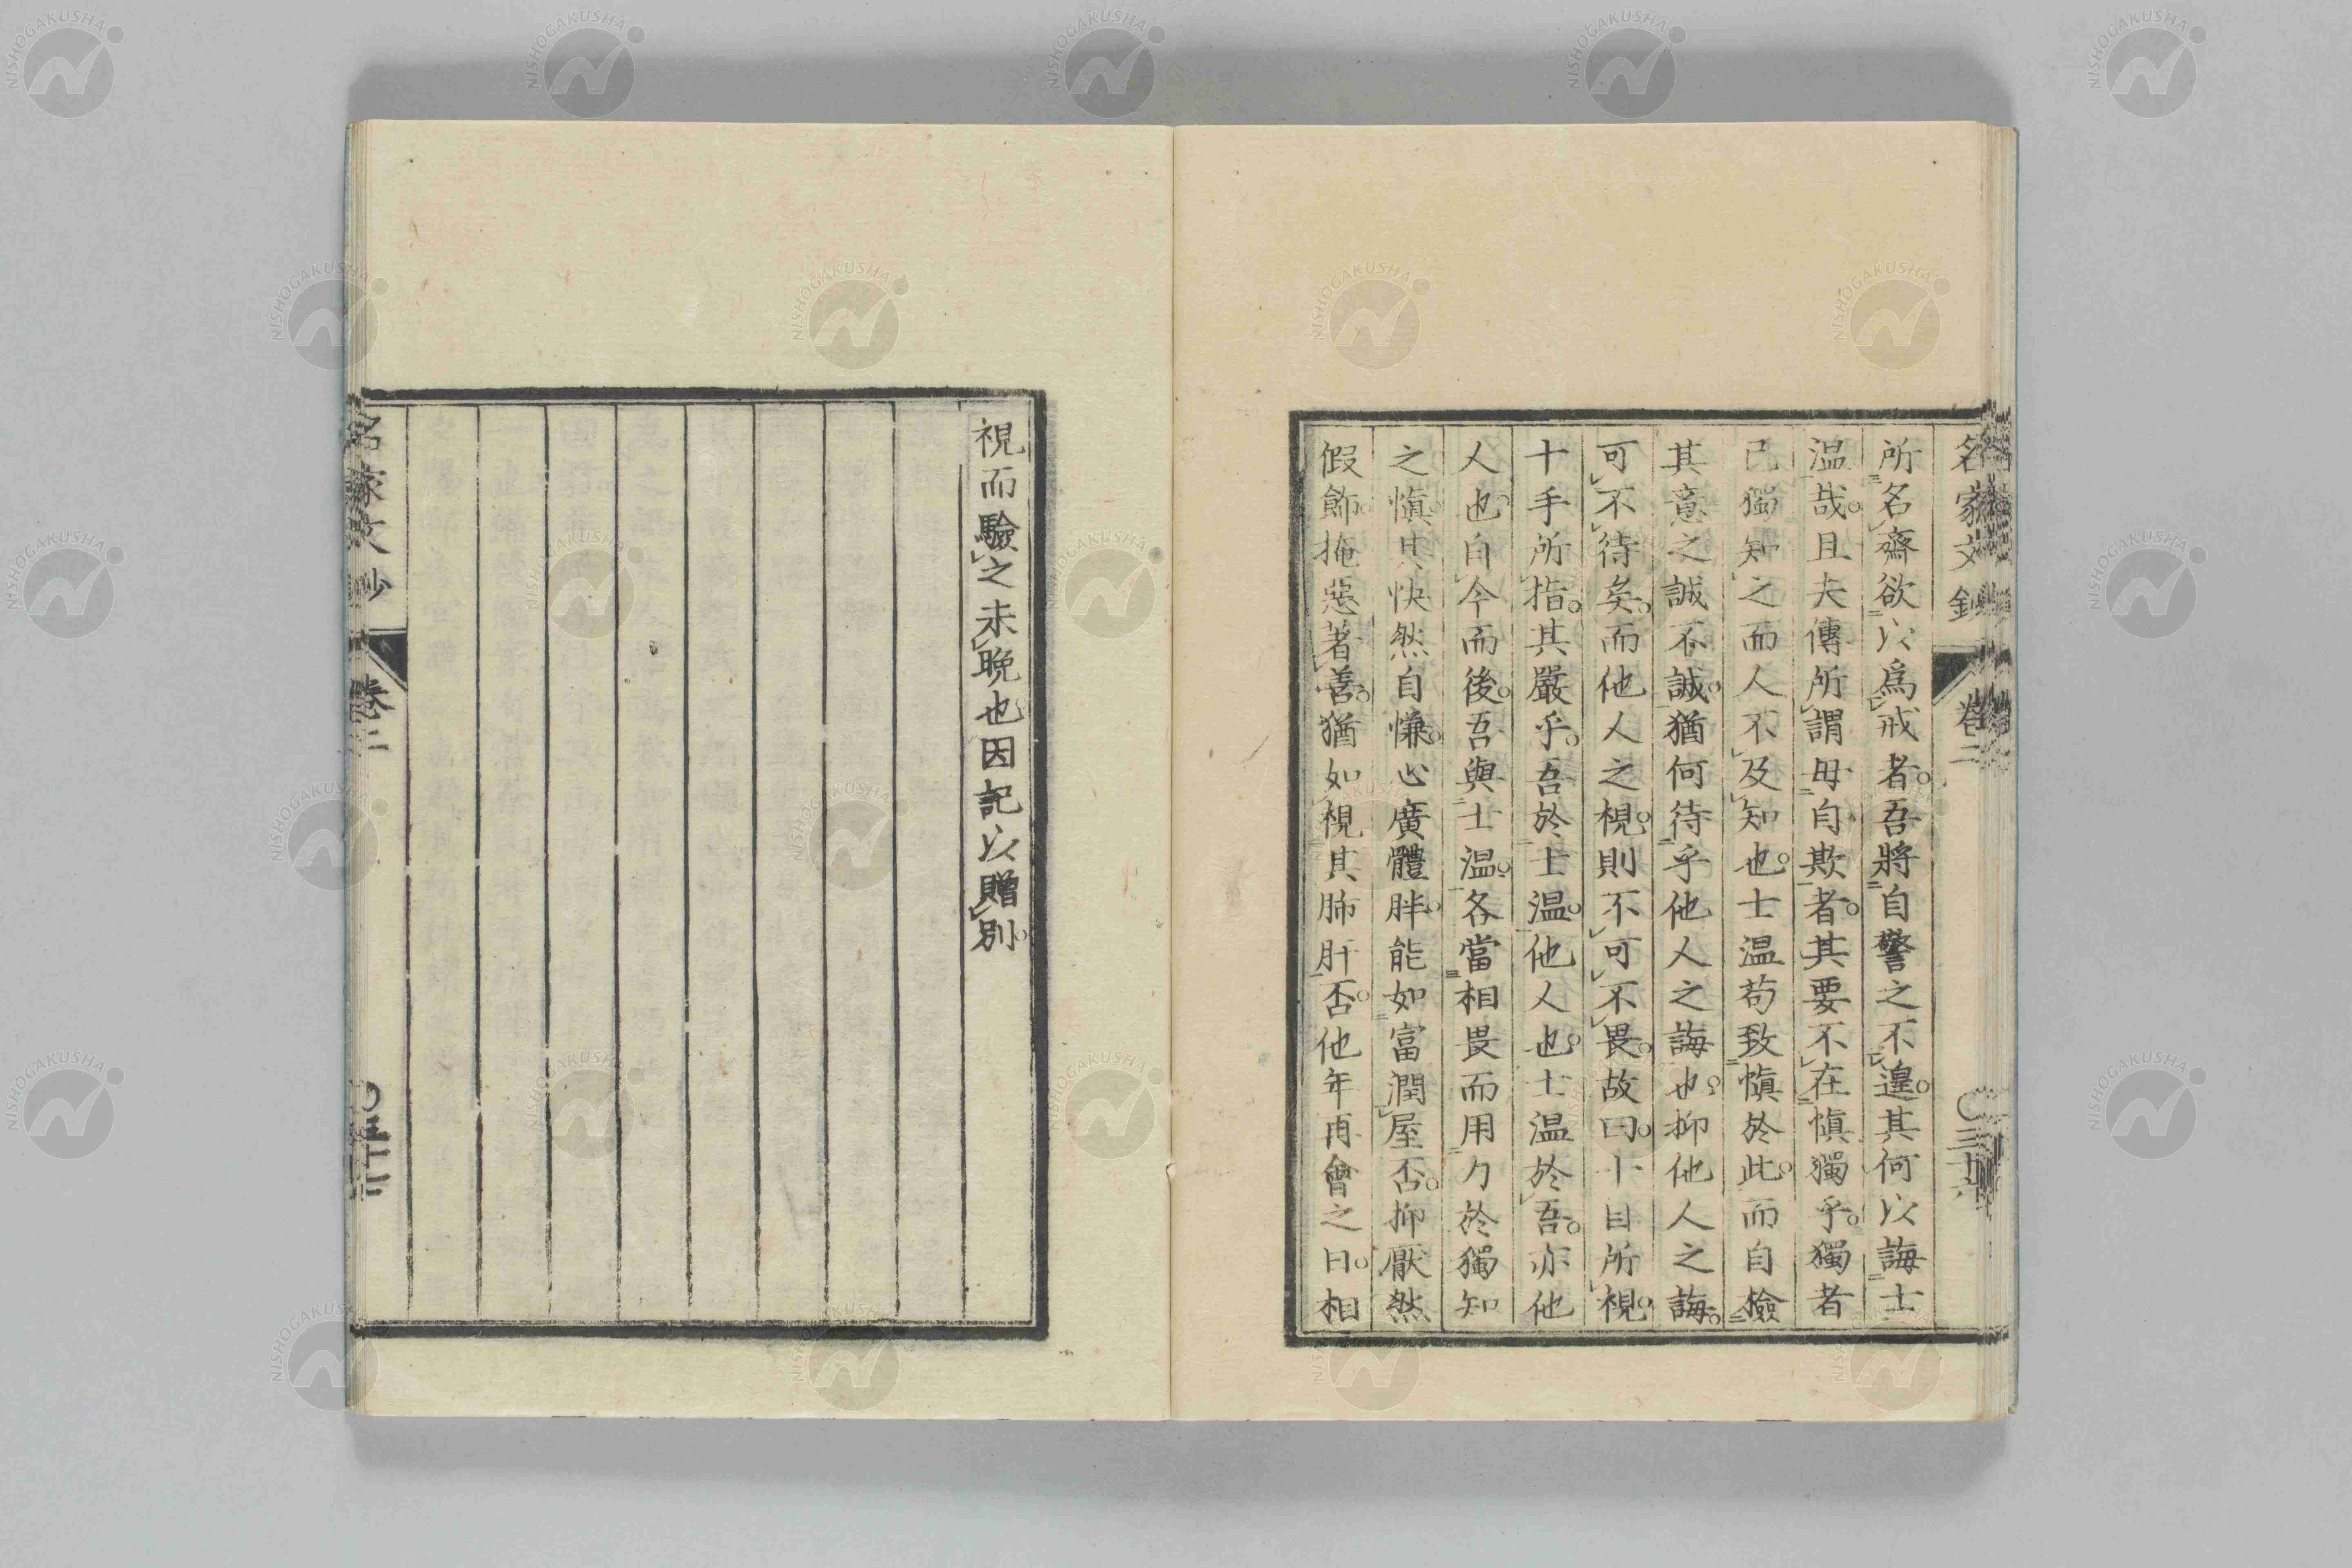 名家文鈔 卷二 〇三十六
所名齋欲以爲戒者。吾將自警之不遑。其何以誨士
温哉。且夫傳所謂毋自欺者。其要不在愼獨乎。獨者
己獨知之而人不及知也。士温苟致愼於此。而自檢
其意之誠不誠。猶何待乎他人之誨也。抑他人之誨。
可不待矣。而他人之視。則不可不畏。故曰。十目所視。
十手所指。其嚴乎。吾於士温。他人也。士温於吾。亦他
人也。自今而後。吾與士温。各當相畏而用力於獨知
之愼。其快然自慊。心廣體胖。能如富潤屋否。抑厭然
假飾。掩惡著善。猶如視其肺肝否。他年再會之日。相
視而驗之未晩也因記以贈別。
名家文鈔 卷二
NISHOGAKUSHA